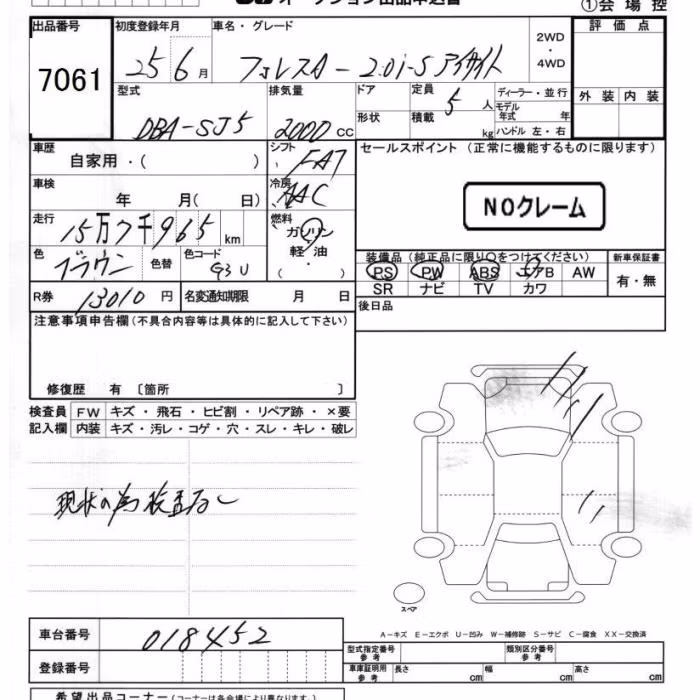 オークション出品申込書
①会 場 控
出品番号
7061
初度登録年月
25 6 月
車名・グレード
フォレスター 2.0i-S アイサイト
2WD
・
4WD
評 価 点
外 装 内 装
型式
DBA-SJ5
排気量
2000 CC
ドア
形状
定員
5 人
積載
kg
ディーラー・並行
モデル
年式 年
ハンドル 左・右
車歴
自家用・( )
シフト
FAT
セールスポイント (正常に機能するものに限ります)
NOクレーム
車検
年 月( 日)
冷房
AAC
走行
15万7千965 km
燃料
ガソリン
軽 油
・
( )
色
ブラウン
色替
色コード
G3U
装備品(純正品に限り○をつけてください)
PS PW ABS エアB AW
SR ナビ TV カワ
新車保証書
有・無
R券 13010 円
名変通知期限 月 日
後日品
注意事項申告欄(不具合内容等は具体的に記入して下さい)
修復歴 有 〔箇所 〕
検査員
記入欄
FW キズ・飛石・ヒビ割・リペア跡・×要
内装 キズ・汚レ・コゲ・穴・スレ・キレ・破レ
現状の為検査なし
スペア
A-キズ E-エクボ U-凹み W-補修跡 S-サビ C-腐食 XX-交換済
車台番号
018452
登録番号
型式指定番号
参 考
類別区分番号
参 考
車庫証明用
参 考
長さ cm 幅 cm 高さ cm
希望出品コーナー(コーナーは各会場により異なります)